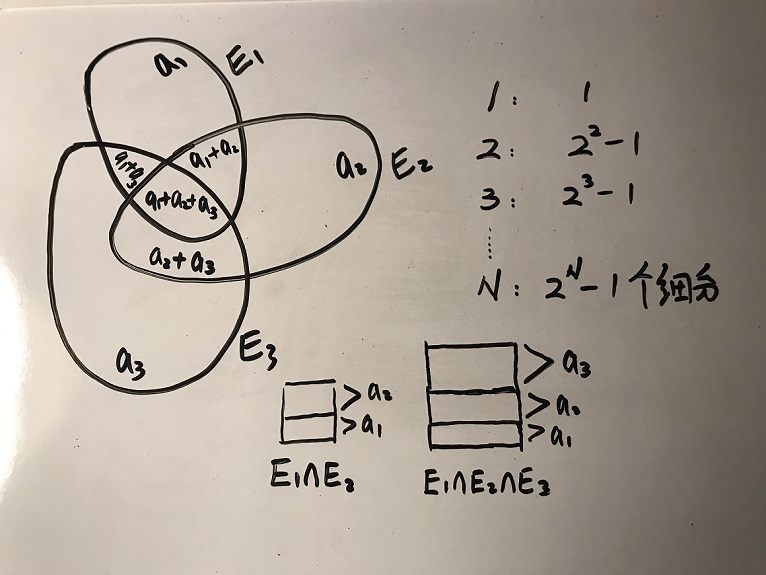 a₁
E₁
a₁+a₃
a₁+a₂
a₂
E₂
a₁+a₂+a₃
a₂+a₃
a₃
E₃
1: 1
2: 2²-1
3: 2³-1
⋮
N: 2ᴺ-1个细分
>a₂
>a₁
E₁∩E₂
>a₃
>a₂
>a₁
E₁∩E₂∩E₃